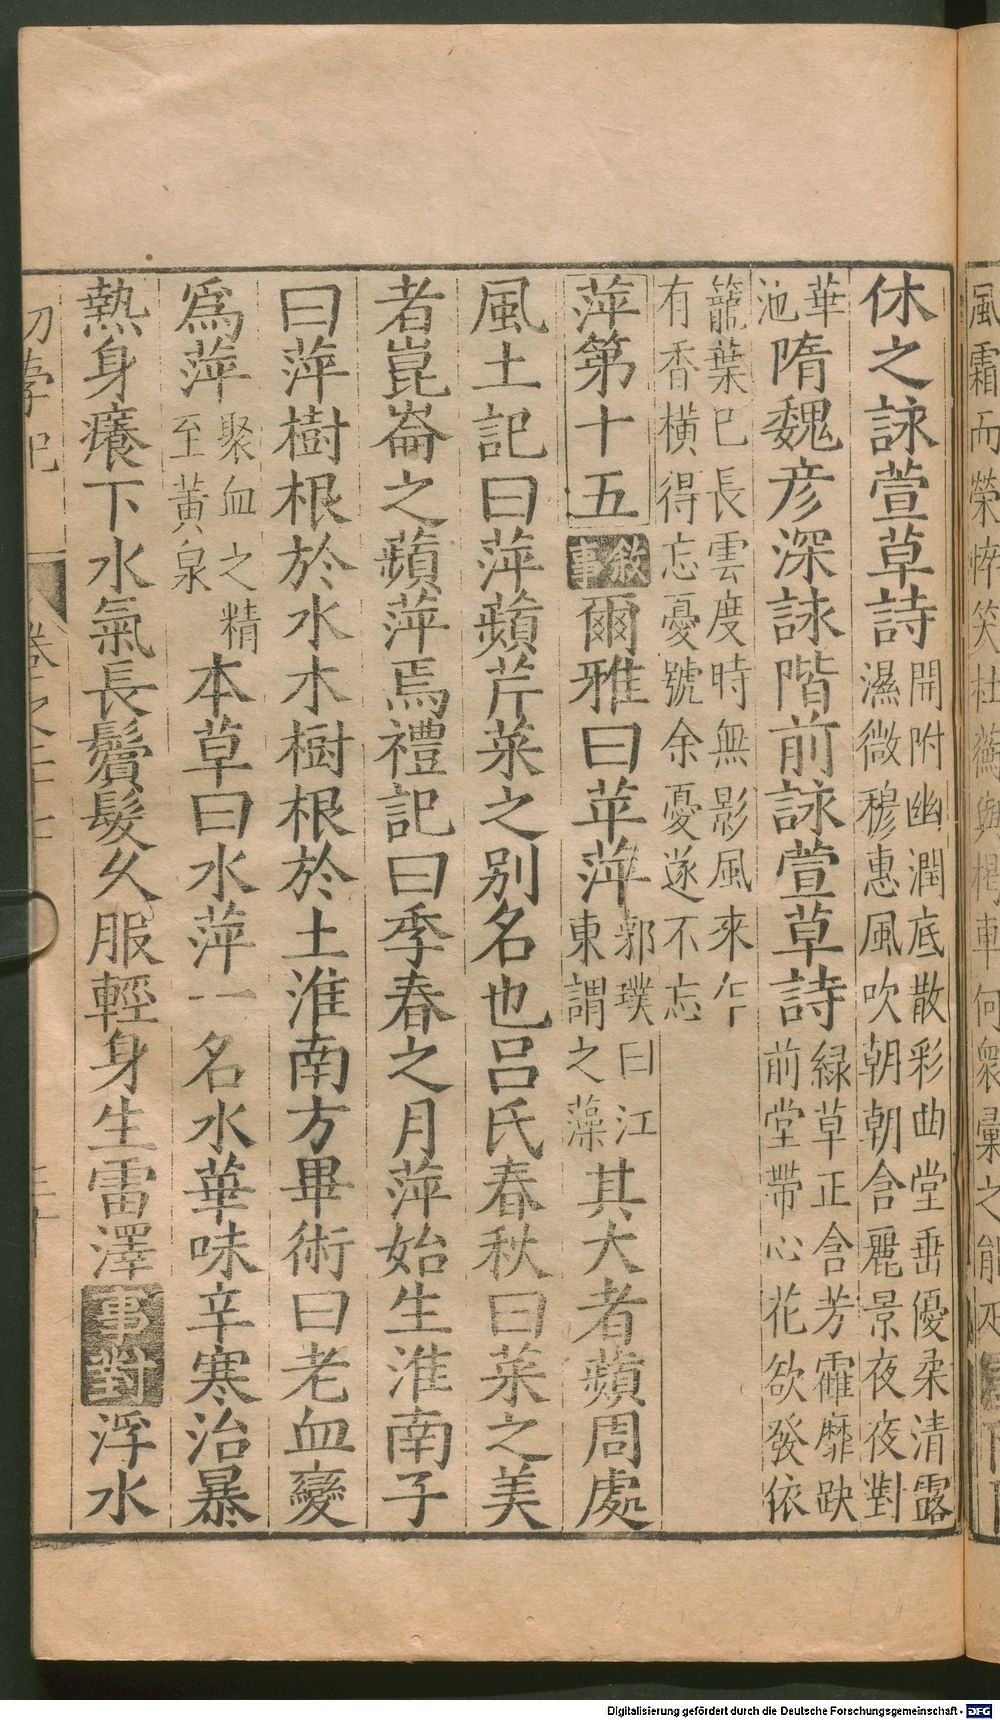 休之詠萱草詩開附幽潤底散彩曲堂垂優柔清露濕微穆惠風吹朝朝含麗景夜夜對
華池隋魏彥深詠階前詠萱草詩綠草正含芳霍靡趺前堂帶心花欲發依
籠葉已長雲度時無影風來乍有香橫得忘憂號余憂遂不忘
萍第十五敘事爾雅曰苹萍郭璞曰江東謂之藻其大者蘋周處
風土記曰萍蘋芹菜之别名也呂氏春秋曰菜之美
者崑崙之蘋萍焉禮記曰季春之月萍始生淮南子
曰萍樹根於水木樹根於土淮南方畢術曰老血變
爲萍聚血之精至黃泉本草曰水萍一名水華味辛寒治暴
熱身癢下水氣長鬢髮久服輕身生雷澤事對浮水
初學記 卷之二十七 三十
Digitalisierung gefördert durch die Deutsche Forschungsgemeinschaft - DFG